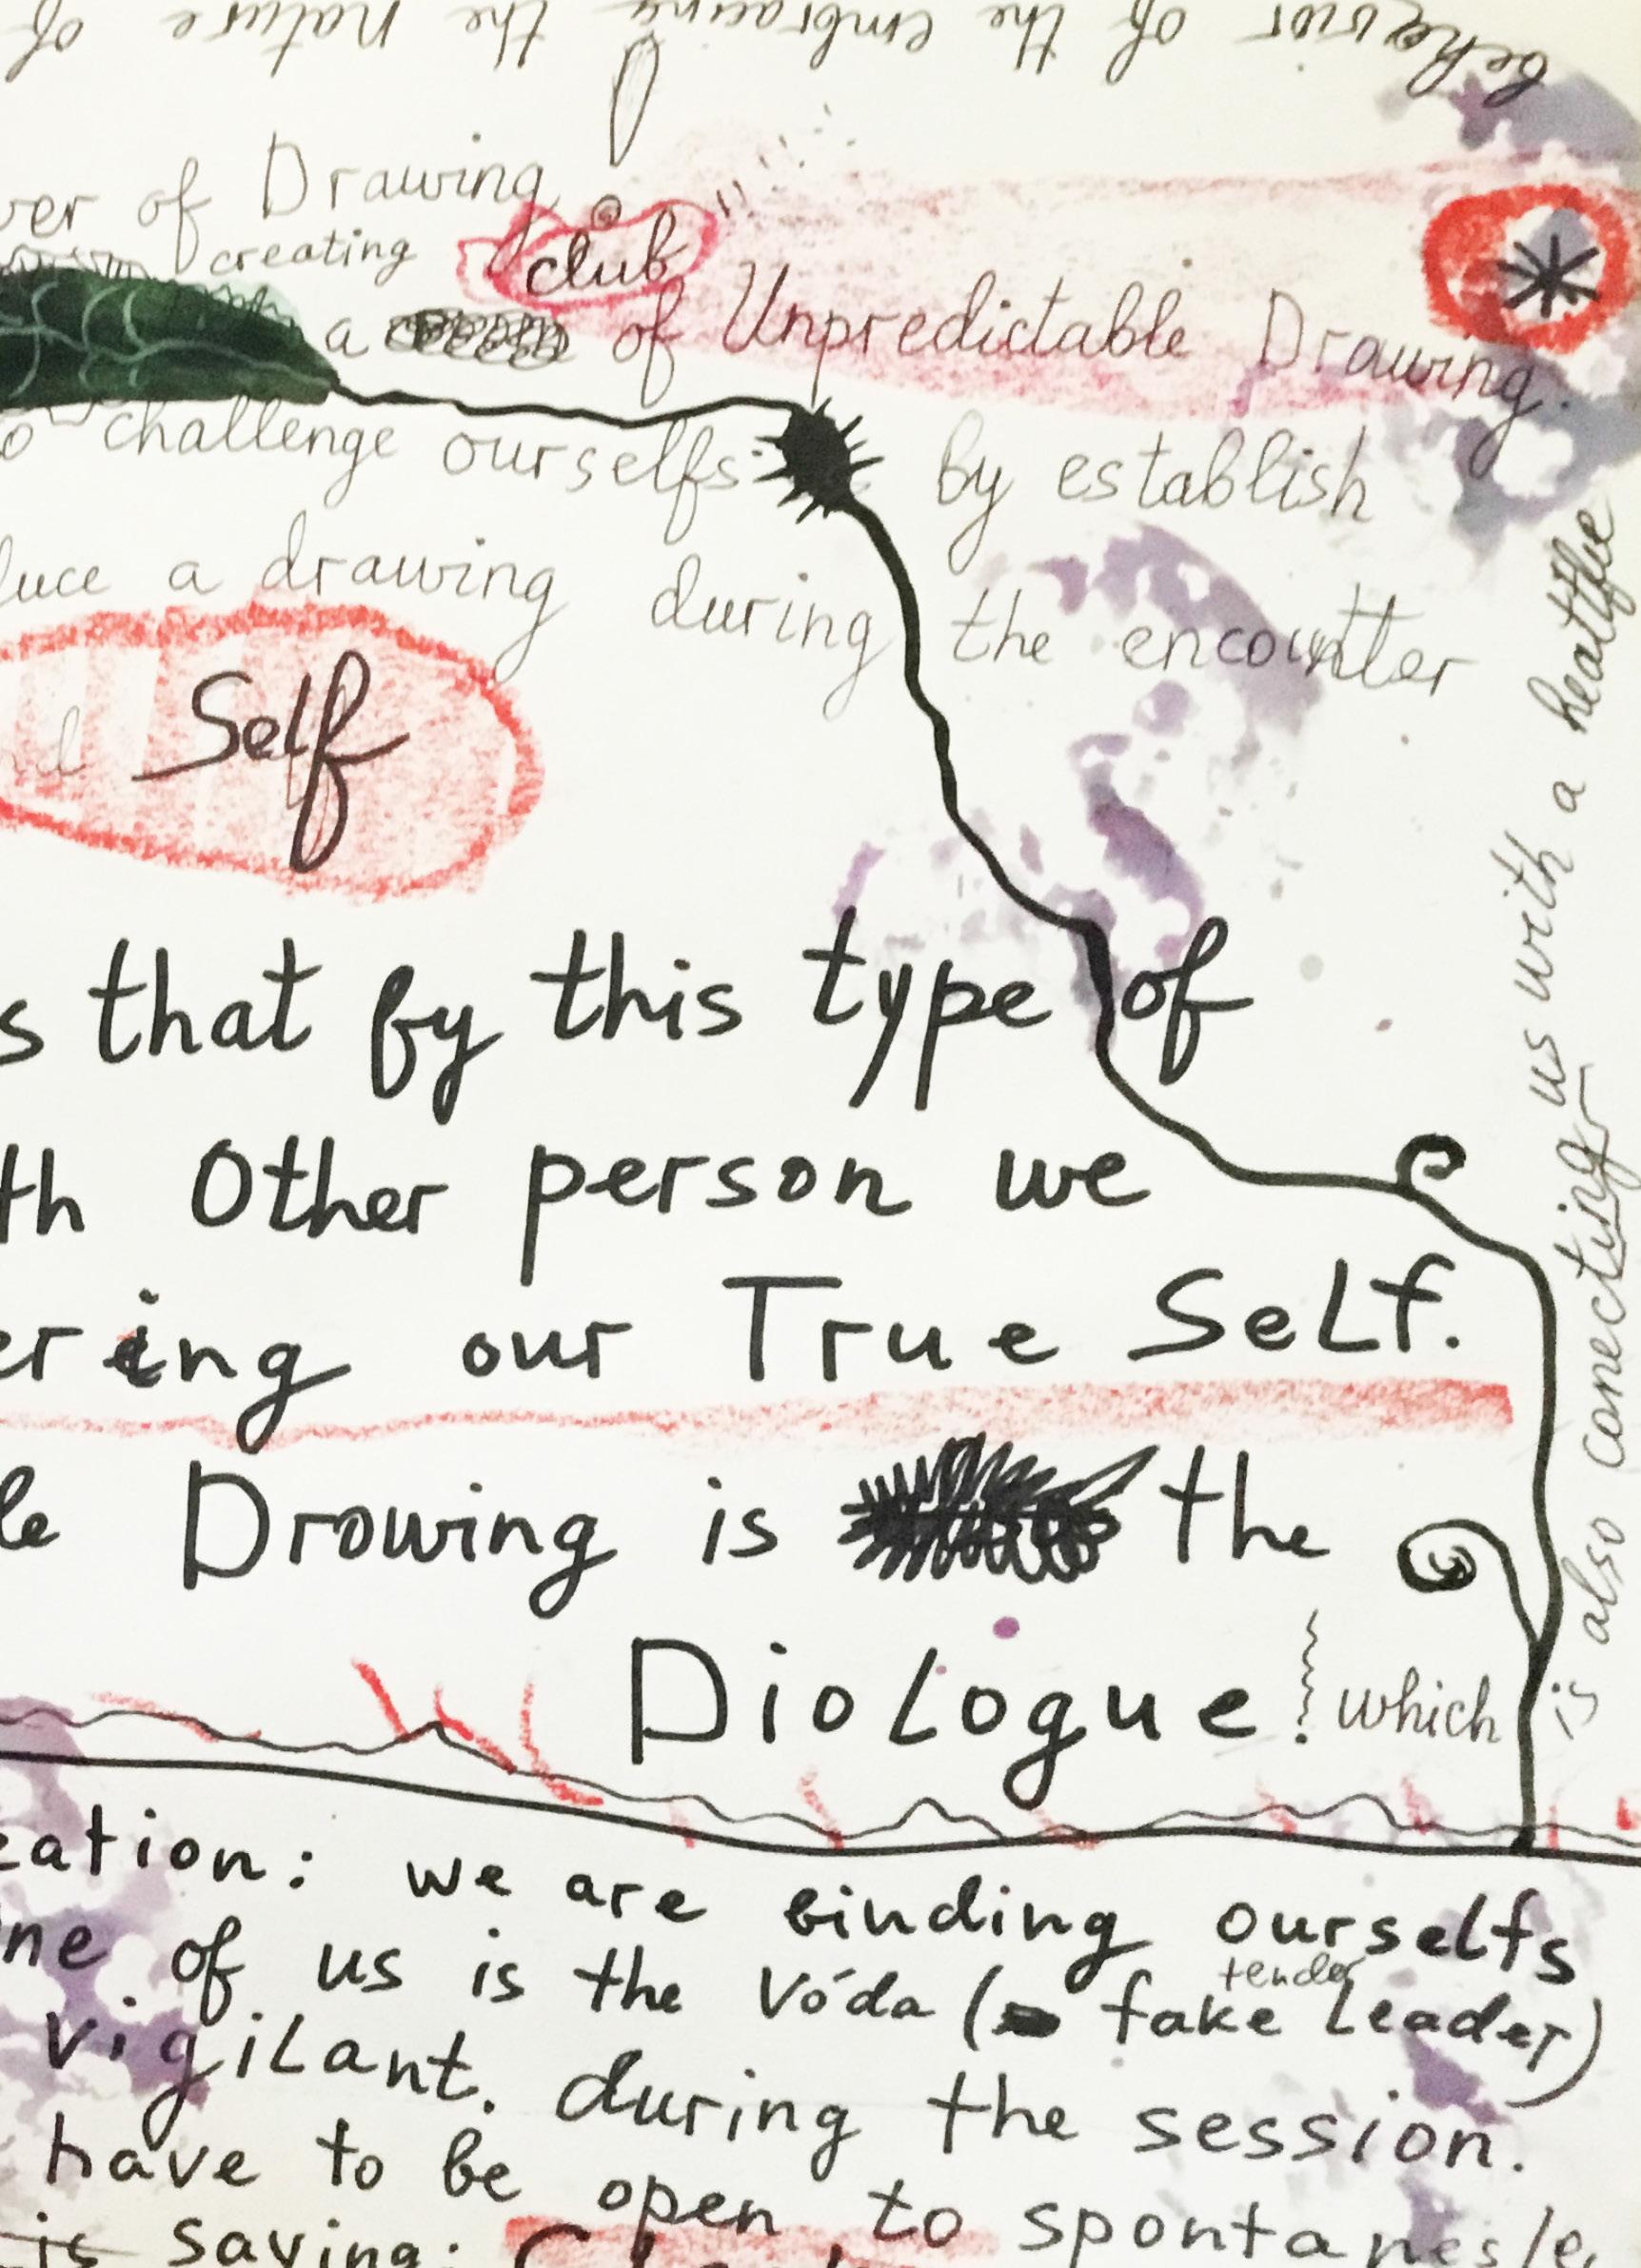 behavior of the embracing the nature of
ver of Drawing
creating club
a of Unpredictable Drawing.
o challenge ourselfs by establish
luce a drawing during the encounter
Self
s that by this type of
th Other person we
ering our True Self.
le Drowing is the
Diologue! which
is also conecting us with a healthie
eation: we are binding ourselfs
ne of us is the Vóda (fake tender Leader)
vigilant. during the session.
have to be open to
is saying: